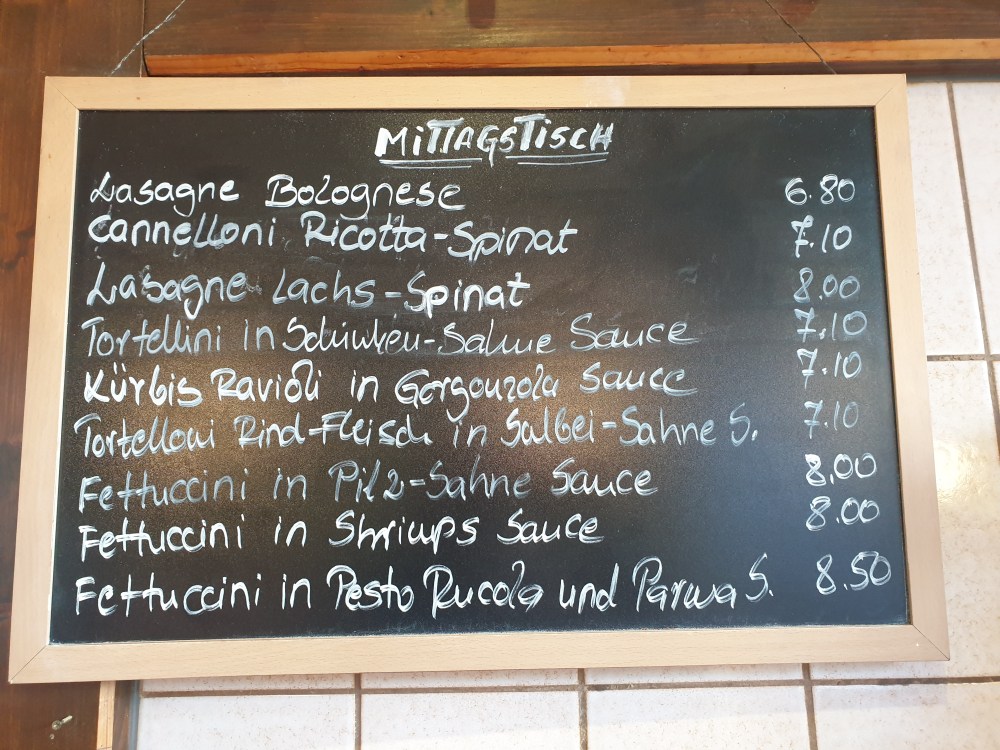 MiTTAGSTiSCH
Lasagne Bolognese 6.80
Cannelloni Ricotta-Spinat 7.10
Lasagne Lachs-Spinat 8.00
Tortellini in Schinken-Sahne Sauce 7.10
Kürbis Ravioli in Gorgonzola Sauce 7.10
Tortelloni Rind-Fleisch in Salbei-Sahne S. 7.10
Fettuccini in Pilz-Sahne Sauce 8.00
Fettuccini in Shrimps Sauce 8.00
Fettuccini in Pesto Rucola und Parma S. 8.50